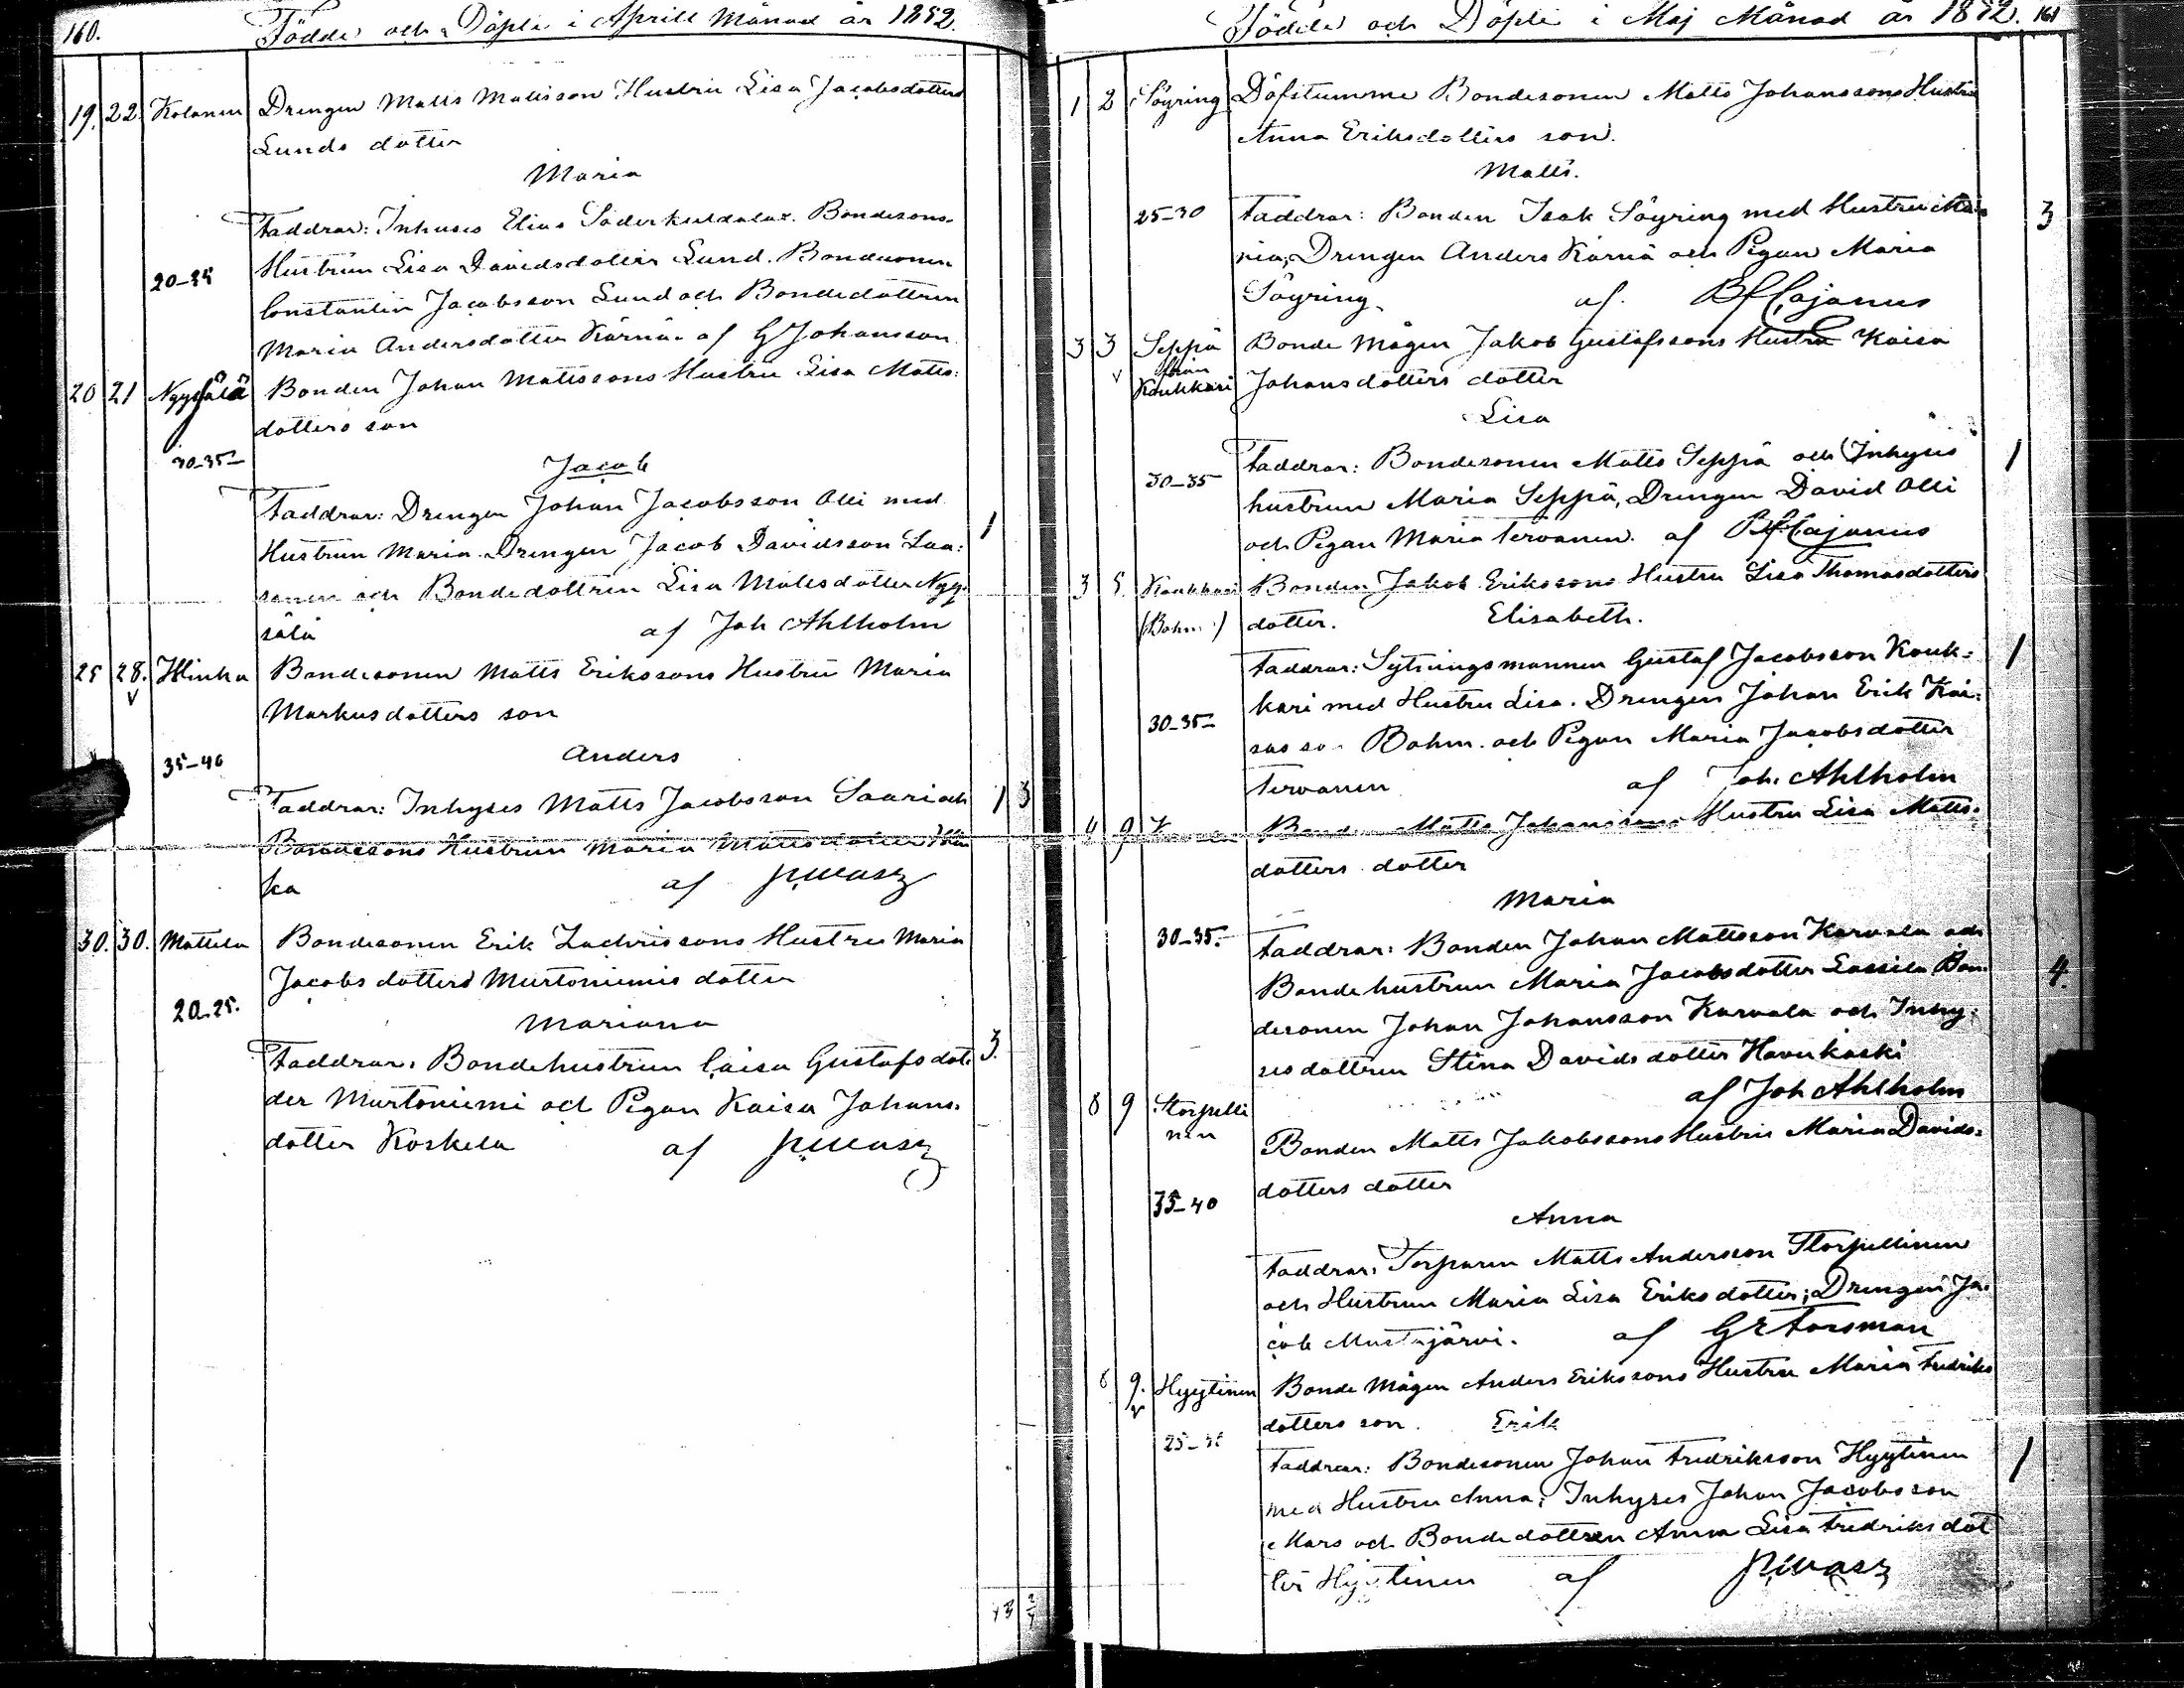 160.
Födde och Döpte i Aprill Månad år 1852.
19. 22. Kolanen Drengen Matts Mattsson Hustru Lisa Jacobsdotters
Lunds dotter
Maria
Faddrar: Inhyses Elias Söderkuldalax. Bondesons
Hustrun Lisa Davidsdotter Lund. Bondesonen
20-25
Constantin Jacobsson Lund och Bondedottren
Maria Andersdotter Kärnä. af G Johansson
20 21 Nygsälä Bonden Johan Mattssons Hustru Lisa Matts:
dotters son
30-35
Jacob
Faddrar: Drengen Johan Jacobsson Olli med 1
Hustrun Maria. Drengen Jacob Davidsson Laa:
sanen och Bondedottren Lisa Mattsdotter Nyg:
sälä af Joh Ahlholm
25 28. Hlinka Bondesonen Matts Erikssons Hustru Maria
Markusdotters son
35-40
Anders
Faddrar: Inhyses Matts Jacobsson Saari och 1 3
Bondesons Hustrun Maria Mattsdotter Hlin
ka af
30. 30. Mattila Bondesonen Erik Zachrissons Hustru Maria
Jacobs dotters Murtoniemis dotter
20-25.
Mariana
Faddrar: Bondehustrun Caisa Gustafs dot: 3.
der Murtoniemi och Pigan Kaisa Johans.
dotter Koskela af
Födde och Döpte i Maj Månad år 1852. 161
1 2 Söyring Döfstumme Bondesonen Matts Johanssons Hustru
Anna Eriksdotters son.
Matts.
25-30 Faddrar: Bonden Isak Söyring med Hustru Ma- 3
ria, Drengen Anders Kärnä och Pigan Maria
Söyring. af Cajanus
3 3 Seppä Bonde Mågen Jakob Gustafssons Hustru Kaisa
från
Koukkari Johansdotters dotter
Lisa
30-35 Faddrar: Bondesonen Matts Seppä och Inhyses 1
hustrun Maria Seppä, Drengen David Olli
och Pigan Maria Tervanen. af Cajanus
3 5. Koukkari Bonden Jakob Erikssons Hustru Lisa Thomasdotters
(Bohm) dotter. Elisabeth.
Faddrar: Sytningsmannen Gustaf Jacobsson Kouk: 1
kari med Hustru Lisa. Drengen Johan Erik Kai:
30-35
sas son Bohm. och Pigan Maria Jacobsdotter
Tervanen af Joh. Ahlholm
4 9 Bonden Matts Johanssons Hustru Lisa Matts:
dotters dotter
Maria
30-35. Faddrar: Bonden Johan Mattsson Karvala och
Bondehustrun Maria Jacobsdotter Lassila Bon: 4.
desonen Johan Johansson Karvala och Inhy:
ses dottren Stina Davidsdotter Havukoski
af Joh Ahlholm
8 9 Storpelli
nen
Bonden Matts Jakobssons Hustru Maria Davids:
dotters dotter
35-40
Anna
Faddrar: Torparen Matts Andersson Storpellinen
och Hustrun Maria Lisa Eriksdotter; Drengen Ja:
cob Mustajärvi. af Forsman
8 9. Hyytinen Bonde Mågen Anders Erikssons Hustru Maria Fredriks
dotters son. Erik
25-30
Faddrar: Bondesonen Johan Fredriksson Hyytinen 1
med Hustru Anna; Inhyses Johan Jacobsson
Mars och Bondedottren Anna Lisa Fredriks dot
ter Hyytinen af